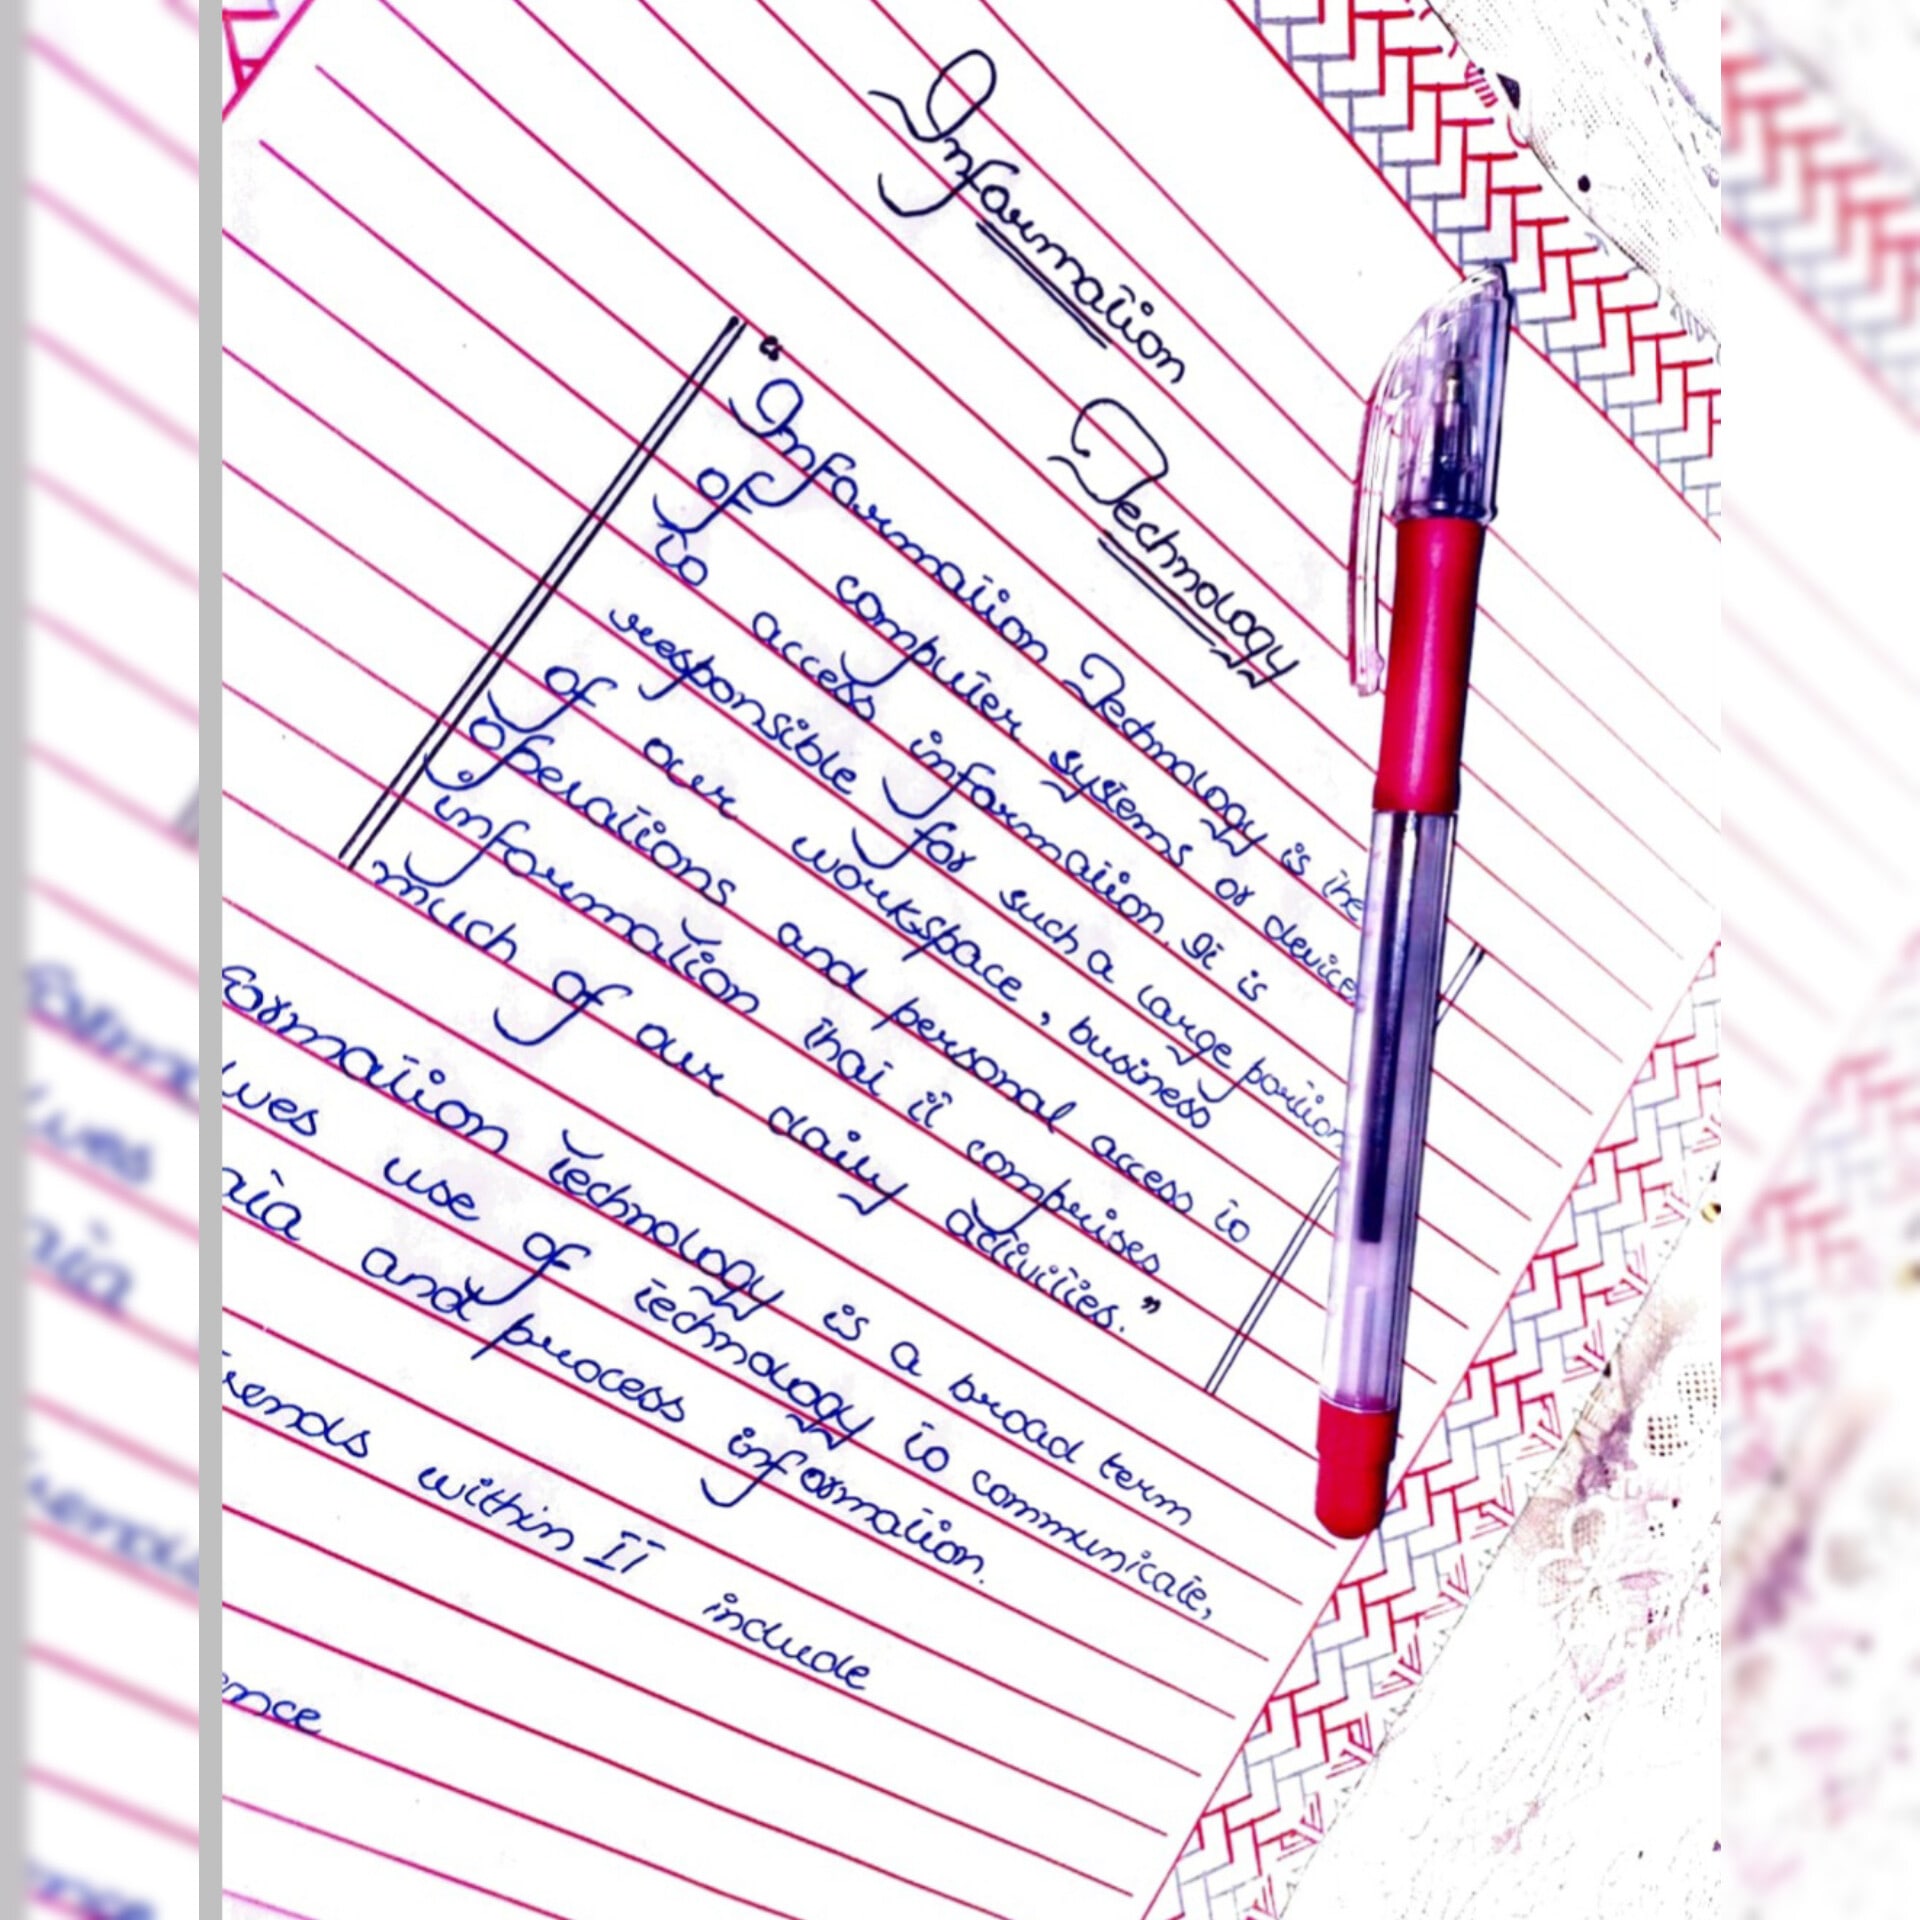 Information Technology
"
Information Technology is the
of computer systems or devices
to access information. It is
responsible for such a large portion
of our workspace, business
operations and personal access to
information that it comprises
much of our daily activities."
formation technology is a broad term
lves use of technology to communicate,
ata and process information.
rends within IT include
ence